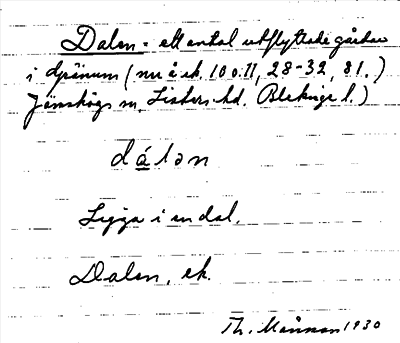 Dalen = ett antal utflyttade gårdar
i Djränum (nu å ek. 10 o. 11, 28-32, 81.)
Jämshögs sn, Listers hd. Blekinge l.)
dálən
Ligga i en dal.
Dalen, ek.
Th. Månsson 1930